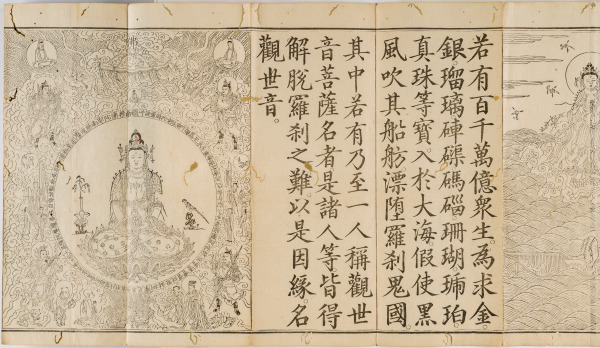 若有百千萬億衆生。為求金
銀瑠璃硨磲碼碯珊瑚琥珀
真珠等寶。入於大海假使黑
風吹其船舫漂墮羅刹鬼國
其中若有乃至一人稱觀世
音菩薩名者是諸人等皆得
解脫羅刹之難以是因緣名
觀世音。